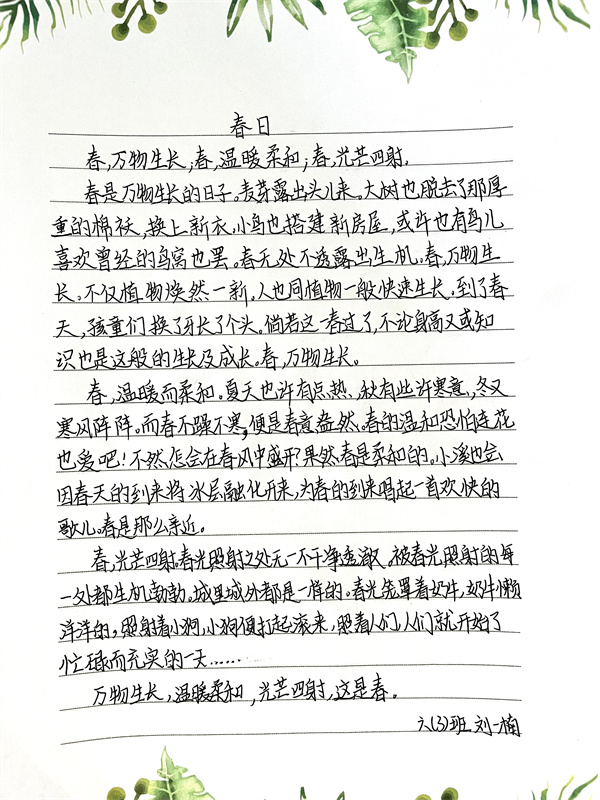 春日
春,万物生长;春,温暖柔和;春,光芒四射.
春是万物生长的日子。麦芽露出头儿来。大树也脱去了那厚
重的棉袄,换上新衣,小鸟也搭建新房屋,或许也有鸟儿
喜欢曾经的鸟窝也罢。春无处不透露出生机。春,万物生
长。不仅植物焕然一新,人也同植物一般快速生长。到了春
天,孩童们换了牙长了个头。倘若这一春过了,不论身高又或知
识也是这般的生长及成长。春,万物生长。
春,温暖而柔和。夏天也许有点热,秋有些许寒意,冬又
寒风阵阵。而春不躁不寒,便是春意盎然。春的温和恐怕连花
也爱吧!不然,怎会在春风中盛开?果然,春是柔和的。小溪也会
因春天的到来将冰层融化开来,为春的到来唱起一首欢快的
歌儿。春是那么亲近。
春,光芒四射。春光照射之处无一不干净透澈。被春光照射的每
一处都生机勃勃。城里城外都是一样的。春光笼罩着奶牛,奶牛懒
洋洋的,照射着小狗,小狗便打起滚来,照着人们,人们就开始了
忙碌而充实的一天……
万物生长,温暖柔和,光芒四射,这是春。
六(3)班 刘一楠